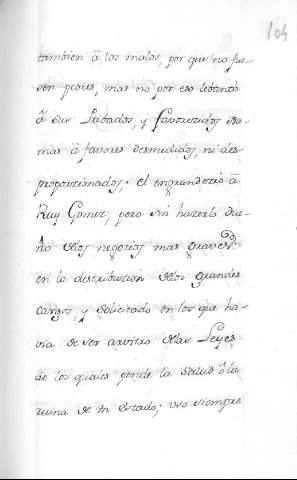 104
tambien â los malos, por que no fue-
sen peores, mas no por eso lebantò
â sus Pribados, y favorezidos ja-
mas â favores desmedidos, ni des-
proporzionados; el engrandezio â
Ruy Gomez, pero sin hazerlo due-
ño de los negozios mas graves,
en la destribuzion de los grandes
cargos, y solicitado en los que ha-
via de ser arvitro de las Leyes
de los quales pende la salud ô la
ruina de un estado; uso siempre